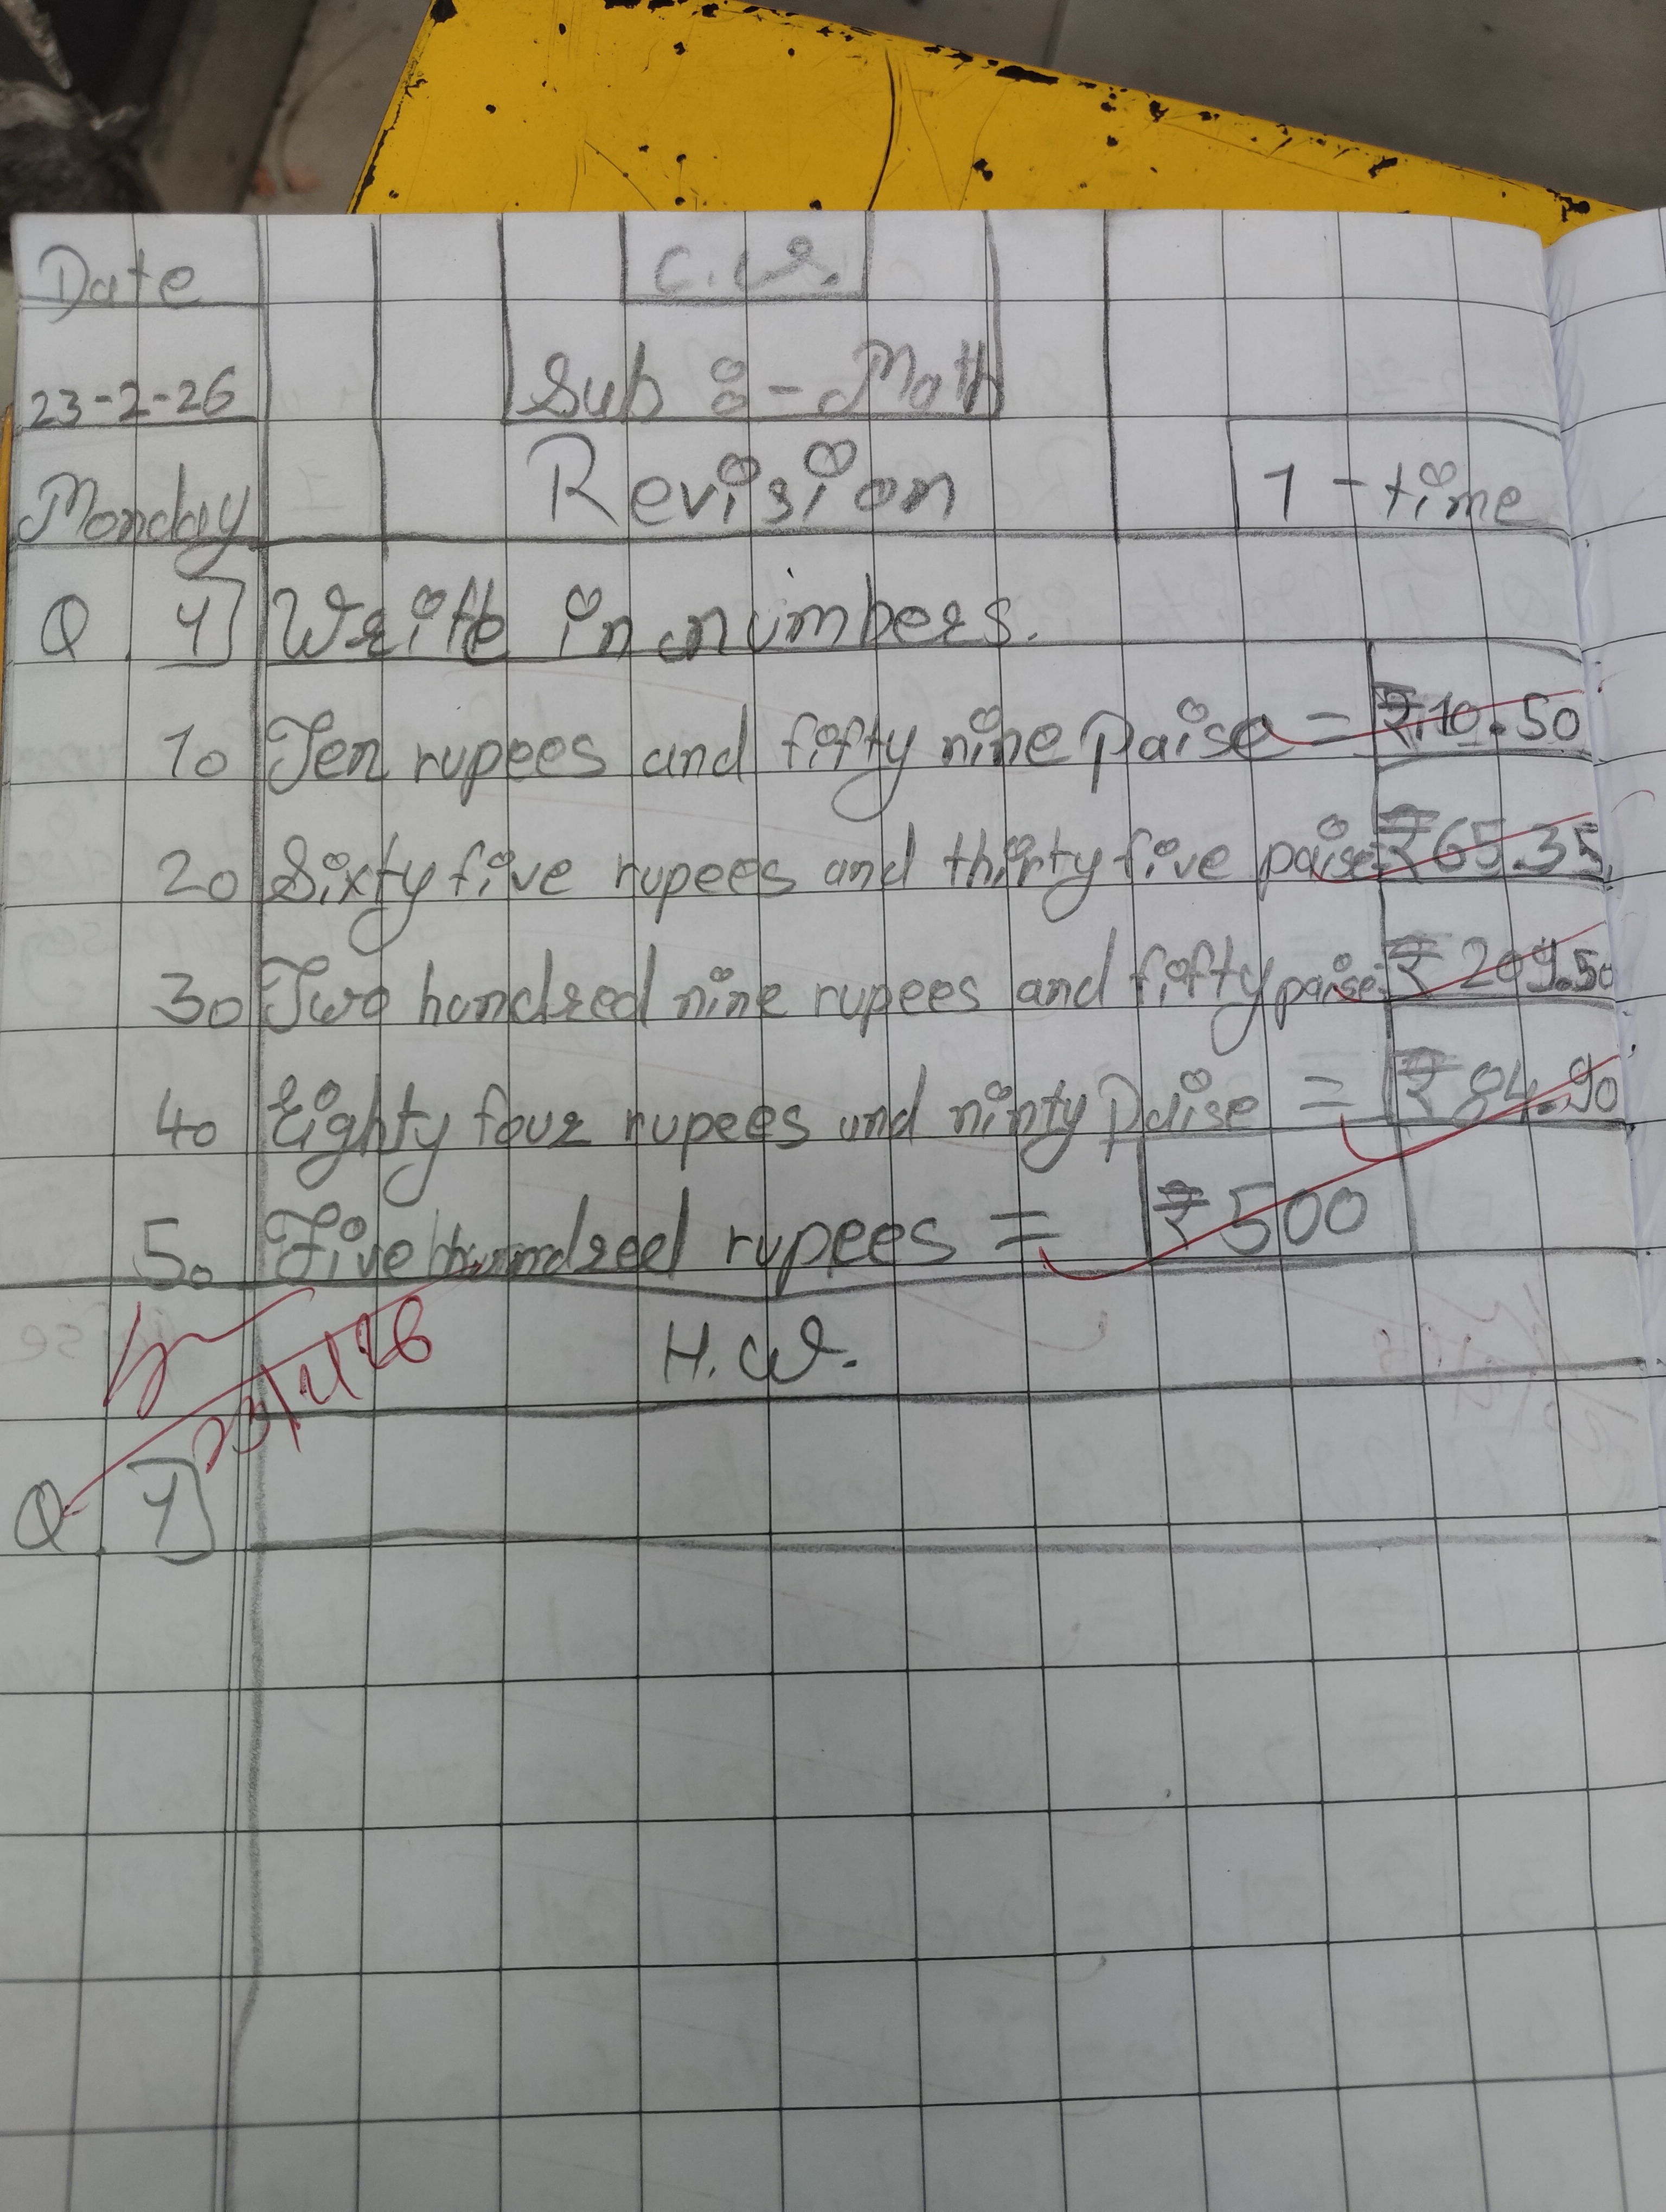 Date C.W.
23-2-26 Sub :- Math
Monday Revision 1-time
Q. 1] Write in numbers.
1. Ten rupees and fifty nine paise = ₹.10.50
2. Sixty five rupees and thirty five paise = ₹65.35
3. Two hundred nine rupees and fifty paise = ₹ 209.50
4. Eighty four rupees and ninty paise = ₹84.90
5. Five hundred rupees = ₹500
23/2/26
H.W.
Q. 1]